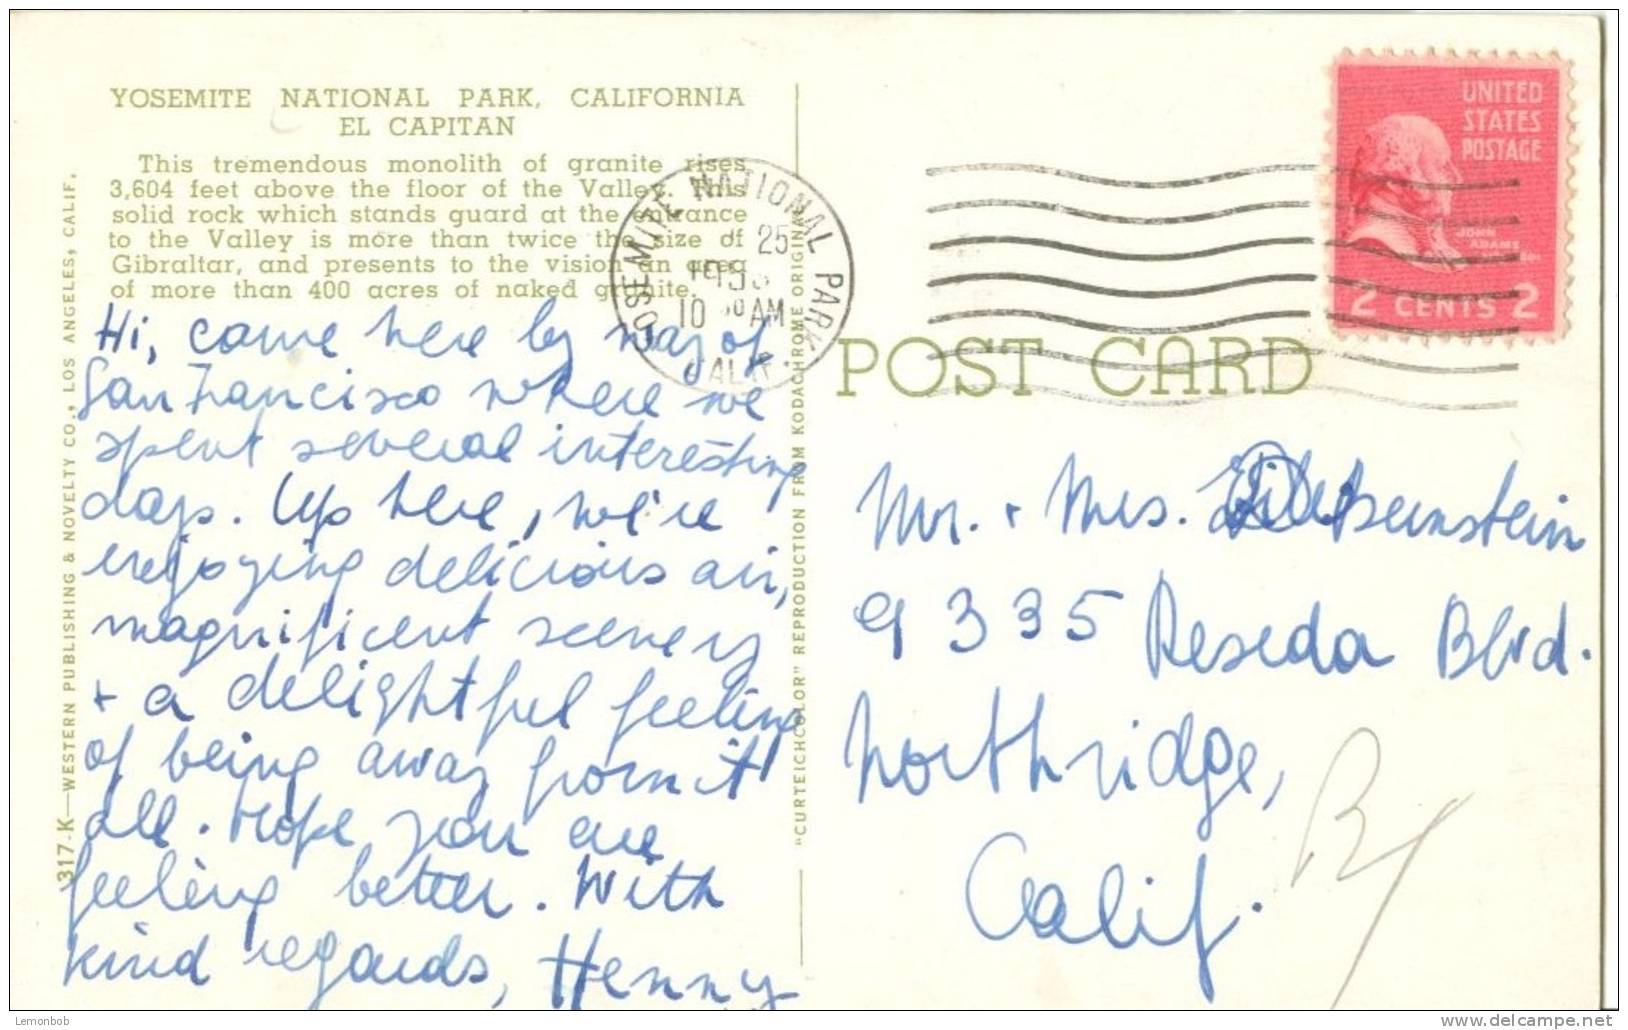 YOSEMITE NATIONAL PARK, CALIFORNIA
EL CAPITAN
This tremendous monolith of granite rises
3,604 feet above the floor of the Valley. This
solid rock which stands guard at the entrance
to the Valley is more than twice the size of
Gibraltar, and presents to the vision an area
of more than 400 acres of naked granite.
Hi, came here by way of
San Francisco where we
spent several interesting
days. Up here, we're
enjoying delicious air,
magnificent scenery
+ a delightful feeling
of being away from it
all. Hope you are
feeling better. With
kind regards, Henny
317-K—WESTERN PUBLISHING & NOVELTY CO., LOS ANGELES, CALIF.
"CURTEICHCOLOR" REPRODUCTION FROM KODACHROME ORIGINAL
YOSEMITE NATIONAL PARK
25
10 AM
CALIF.
UNITED
STATES
POSTAGE
JOHN
ADAMS
2 CENTS 2
POST CARD
Mr. + Mrs. Bernstein
9335 Reseda Blvd.
Northridge,
Calif.
Lemonbob
www.delcampe.net